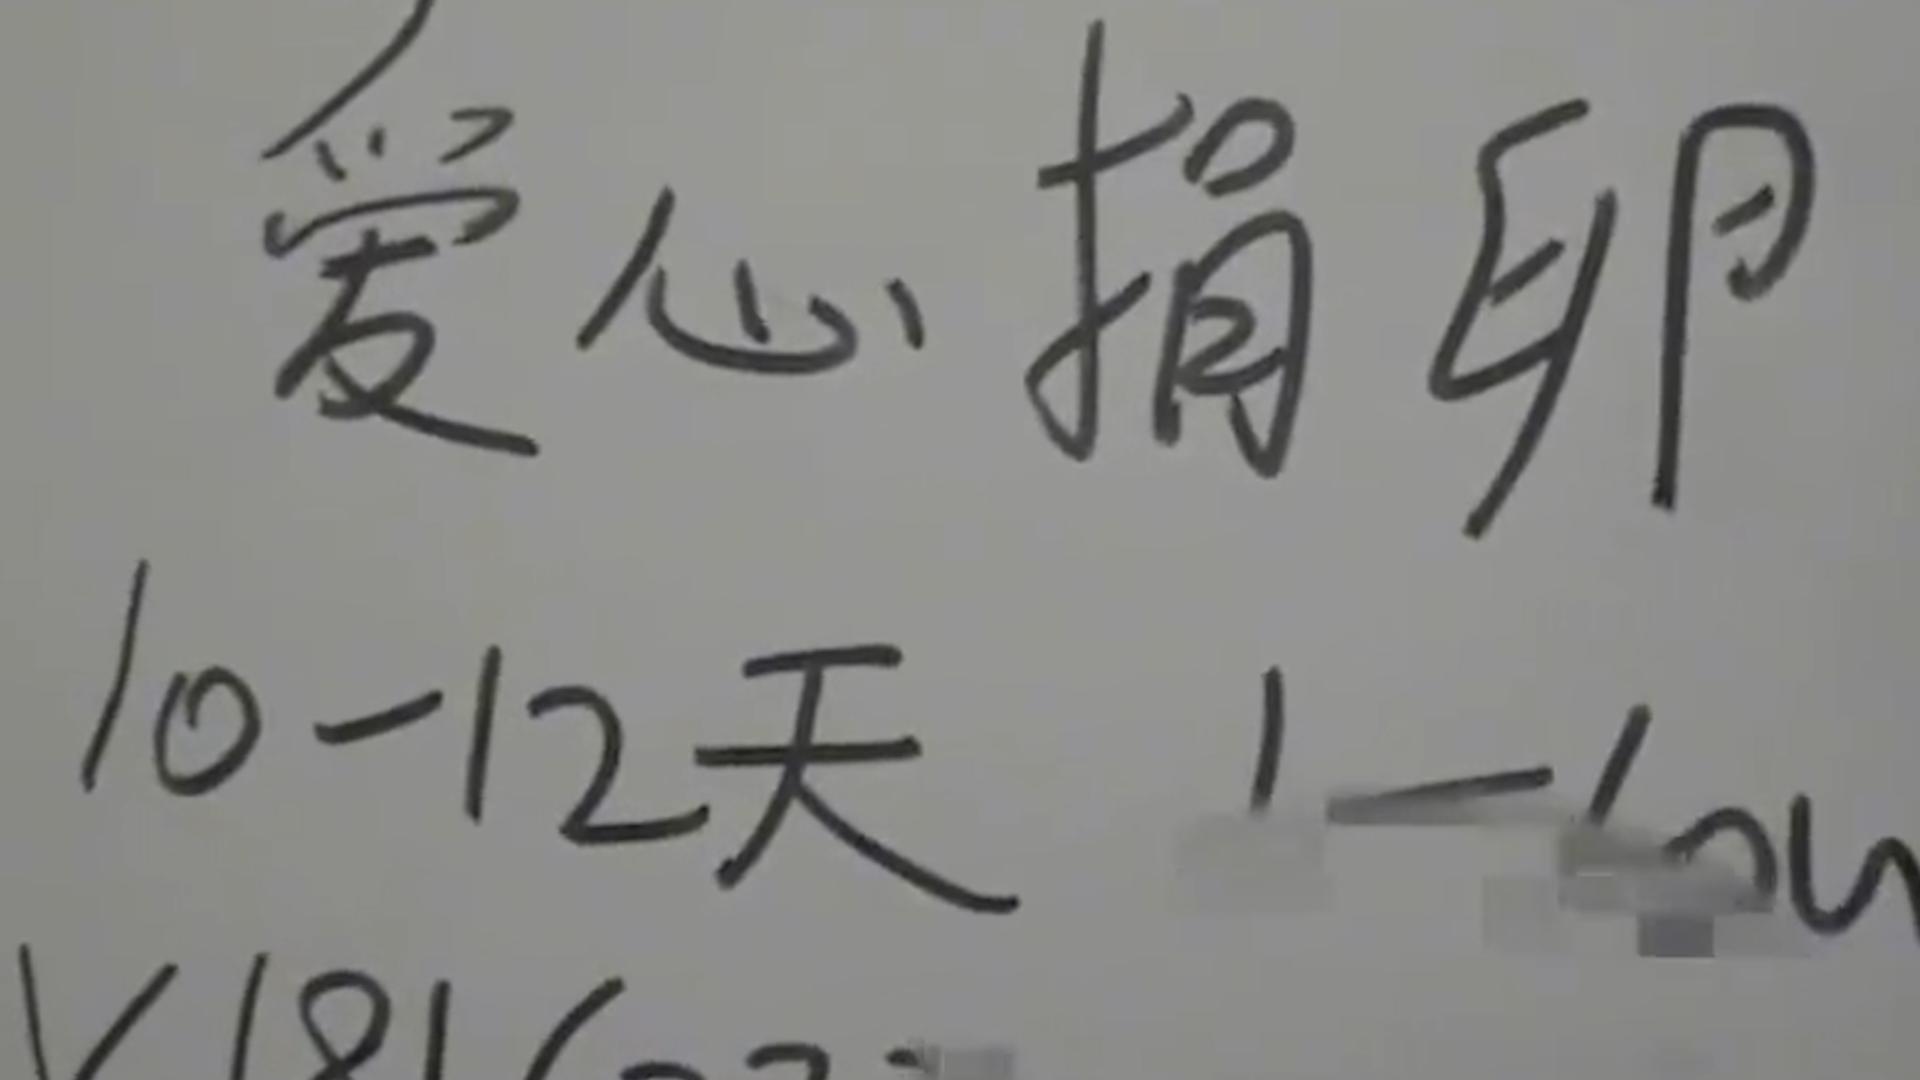 爱心捐卵
10-12天 1-10W
V181